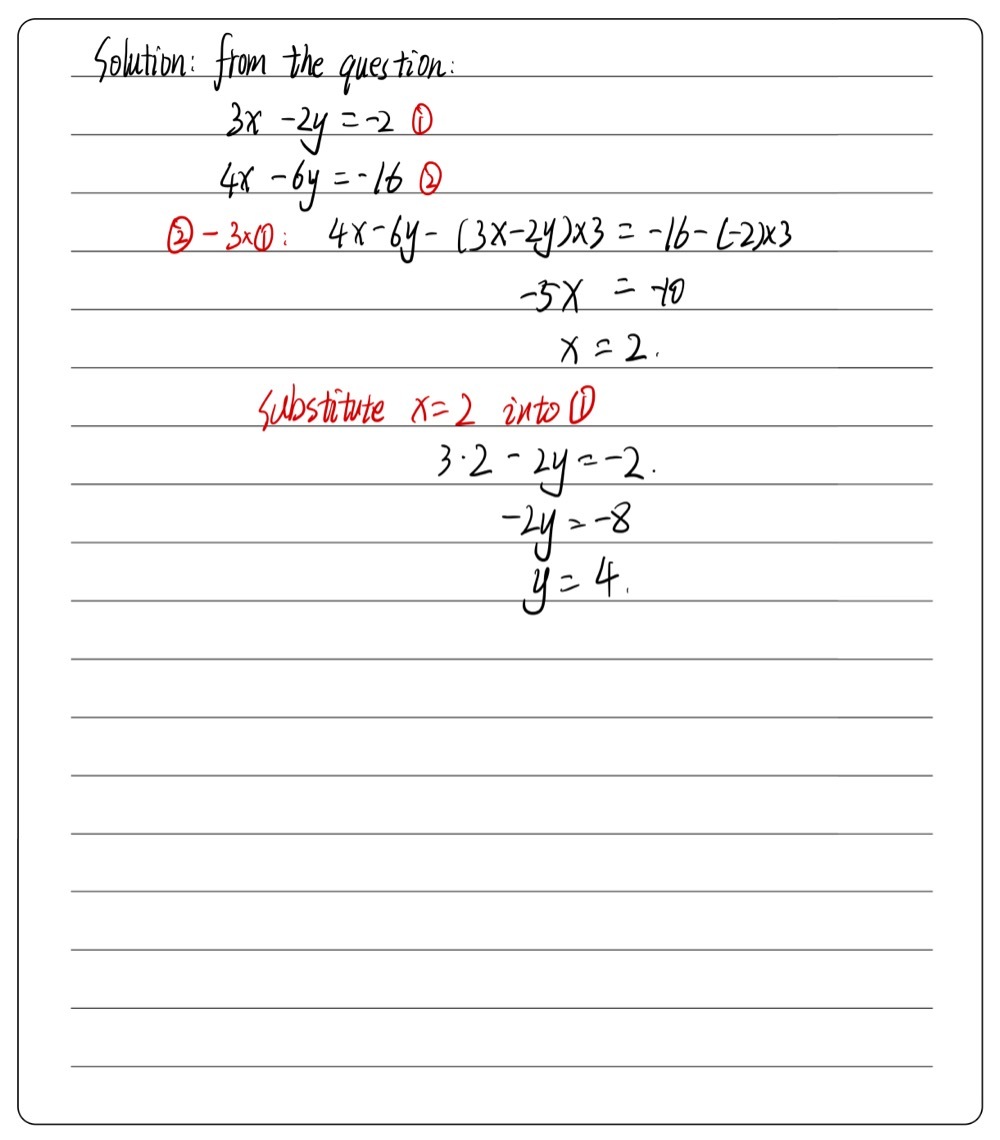 Solution: from the question:
3x - 2y = -2 ①
4x - 6y = -16 ②
② - 3×①: 4x - 6y - (3x - 2y)×3 = -16 - (-2)×3
-5x = -10
x = 2.
Substitute x = 2 into ①
3·2 - 2y = -2.
-2y = -8
y = 4.